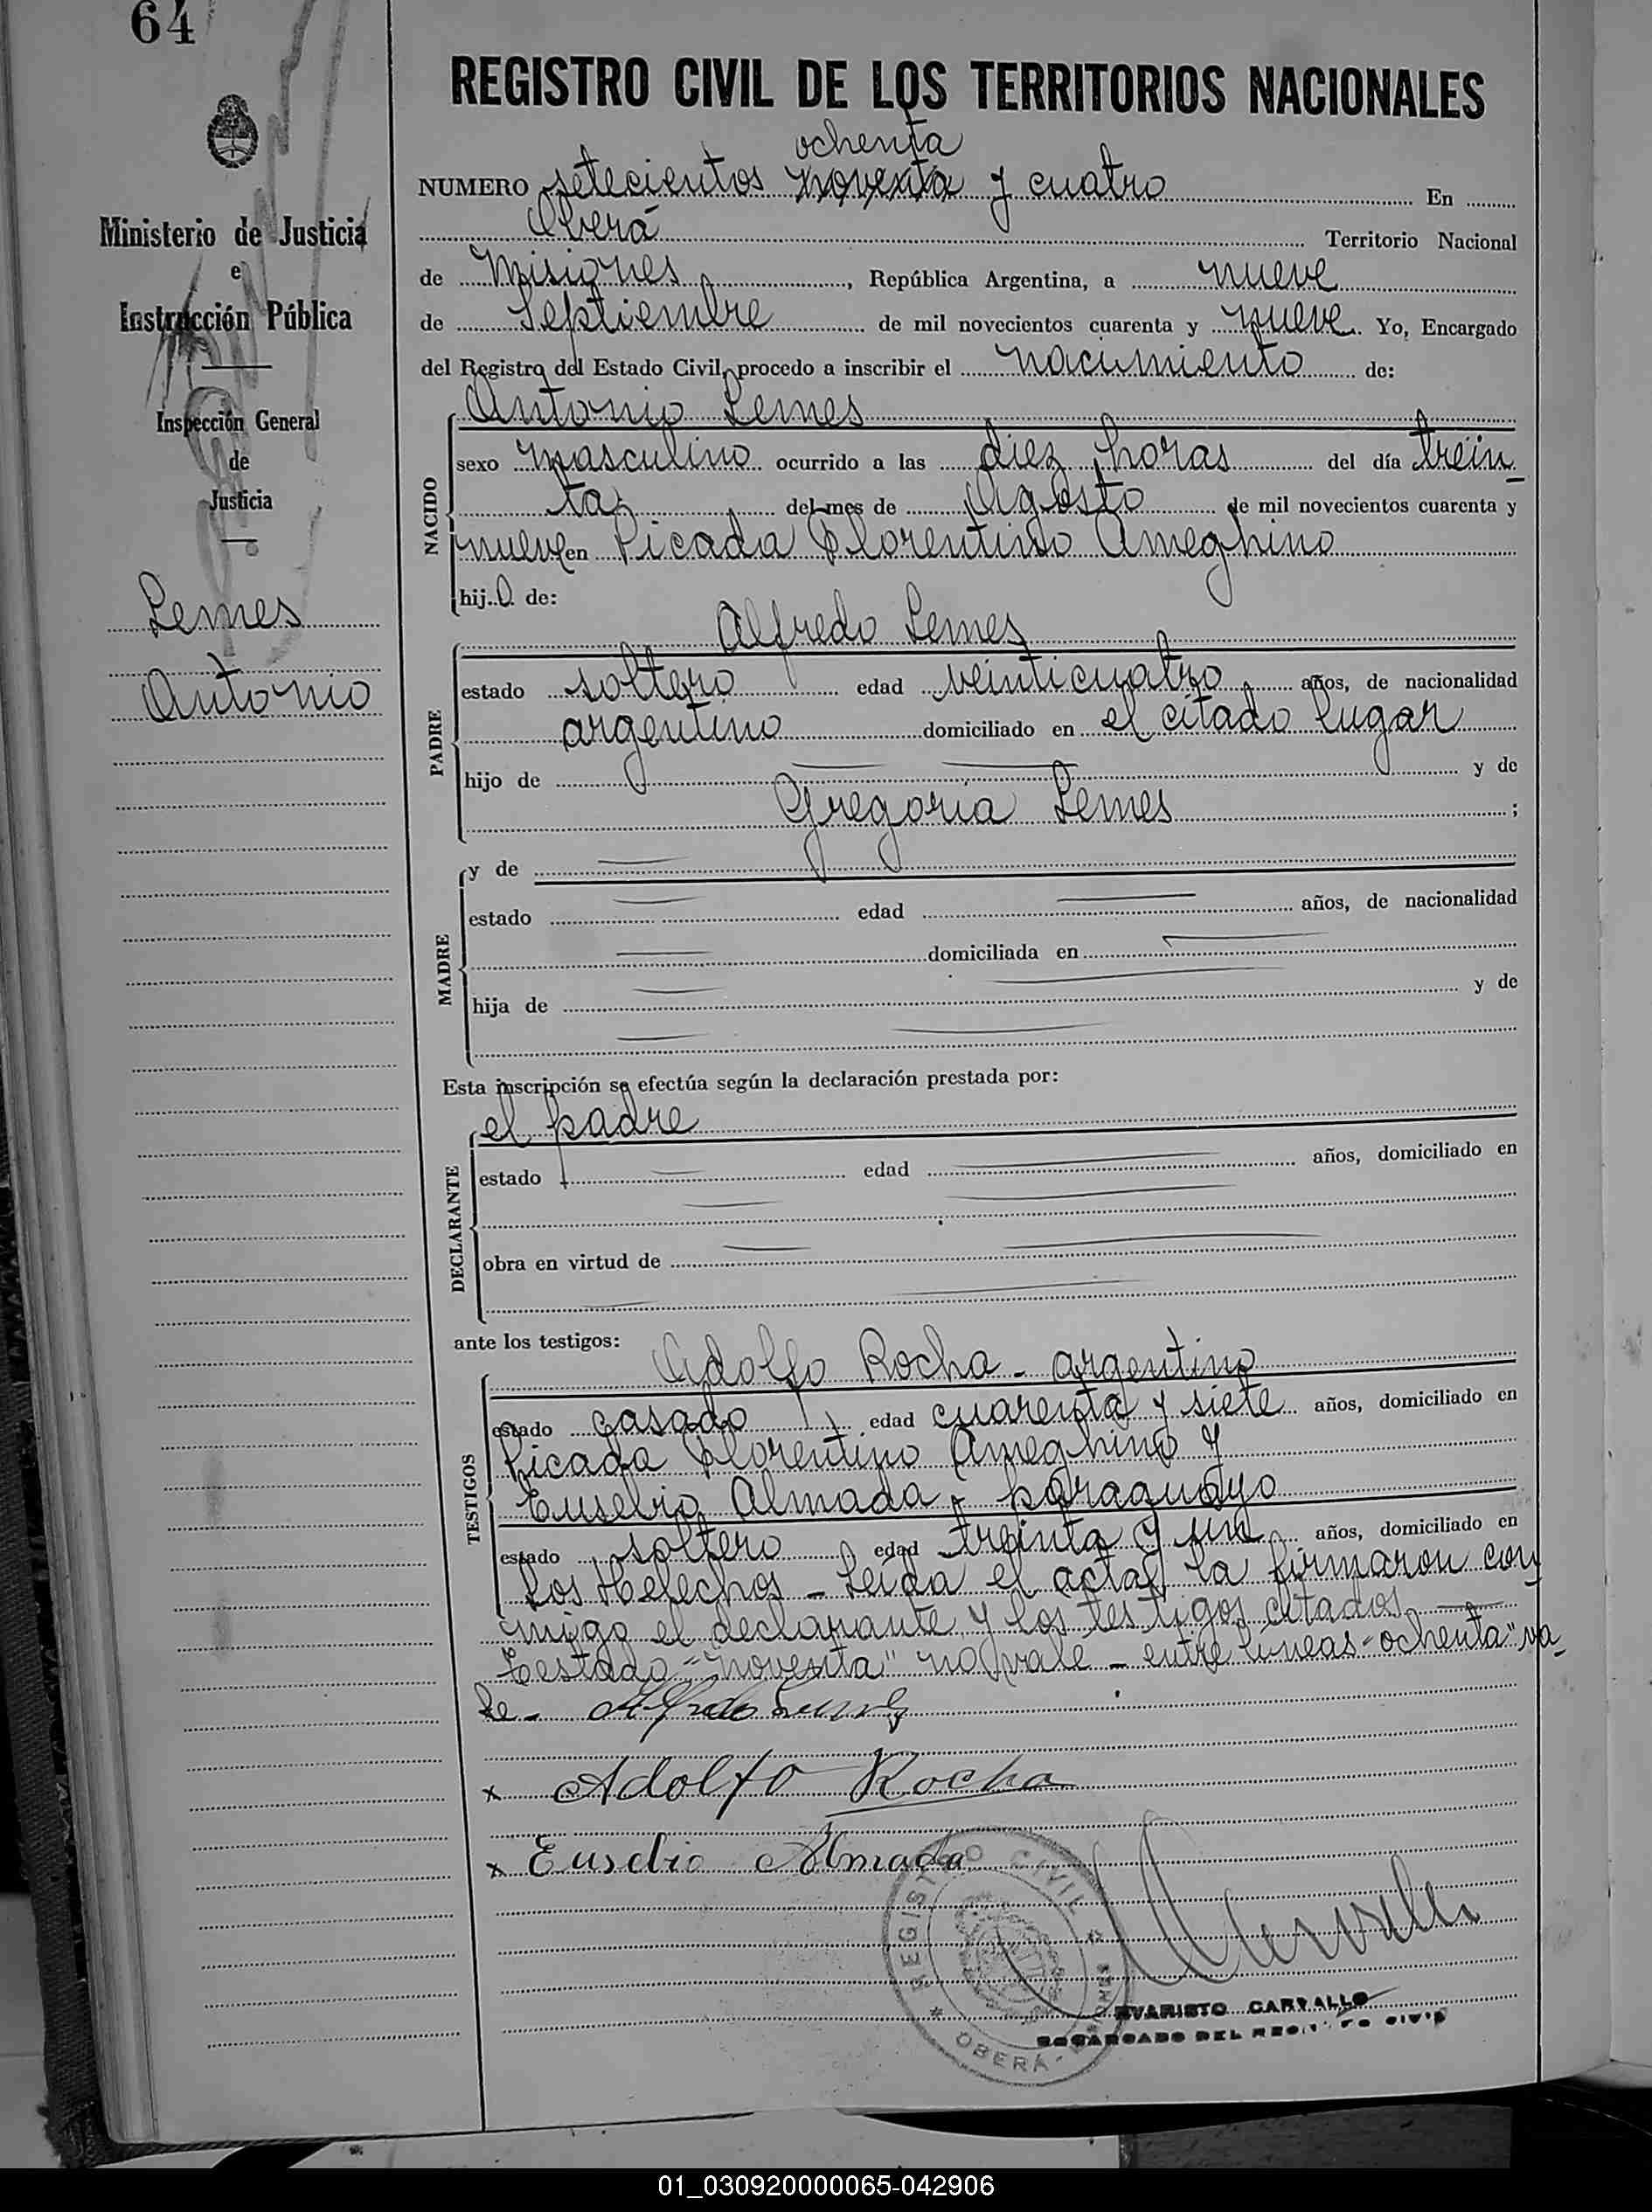 64
REGISTRO CIVIL DE LOS TERRITORIOS NACIONALES
ochenta
NUMERO setecientos noventa y cuatro En
Oberá Territorio Nacional
de Misiones, República Argentina, a nueve
de Septiembre de mil novecientos cuarenta y nueve. Yo, Encargado
del Registro del Estado Civil, procedo a inscribir el nacimiento de:
Ministerio de Justicia
e
Instrucción Pública
Inspección General
de
Justicia
Lemes
Antonio
NACIDO
Antonio Lemes
sexo masculino ocurrido a las diez horas del día trein
ta del mes de Agosto de mil novecientos cuarenta y
nueve en Picada Florentino Ameghino
hijo de:
PADRE
Alfredo Lemes
estado soltero edad veinticuatro años, de nacionalidad
argentino domiciliado en el citado lugar
hijo de y de
Gregoria Lemes ;
MADRE
y de
estado edad años, de nacionalidad
domiciliada en
hija de y de
Esta inscripción se efectúa según la declaración prestada por:
DECLARANTE
el padre
estado edad años, domiciliado en
obra en virtud de
ante los testigos:
TESTIGOS
Adolfo Rocha - argentino
estado casado edad cuarenta y siete años, domiciliado en
Picada Florentino Ameghino y
Eusebio Almada - paraguayo
estado soltero edad treinta y un años, domiciliado en
Los Helechos - Leída el acta, la firmaron con
migo el declarante y los testigos citados
Testado "noventa" no vale - entre líneas "ochenta" va
le - Alfredo Lemes
x Adolfo Rocha
x Eusebio Almada
REGISTRO CIVIL
OBERÁ - MISIONES
EVARISTO CARVALLO
ENCARGADO DEL REGISTRO CIVIL
01_030920000065-042906